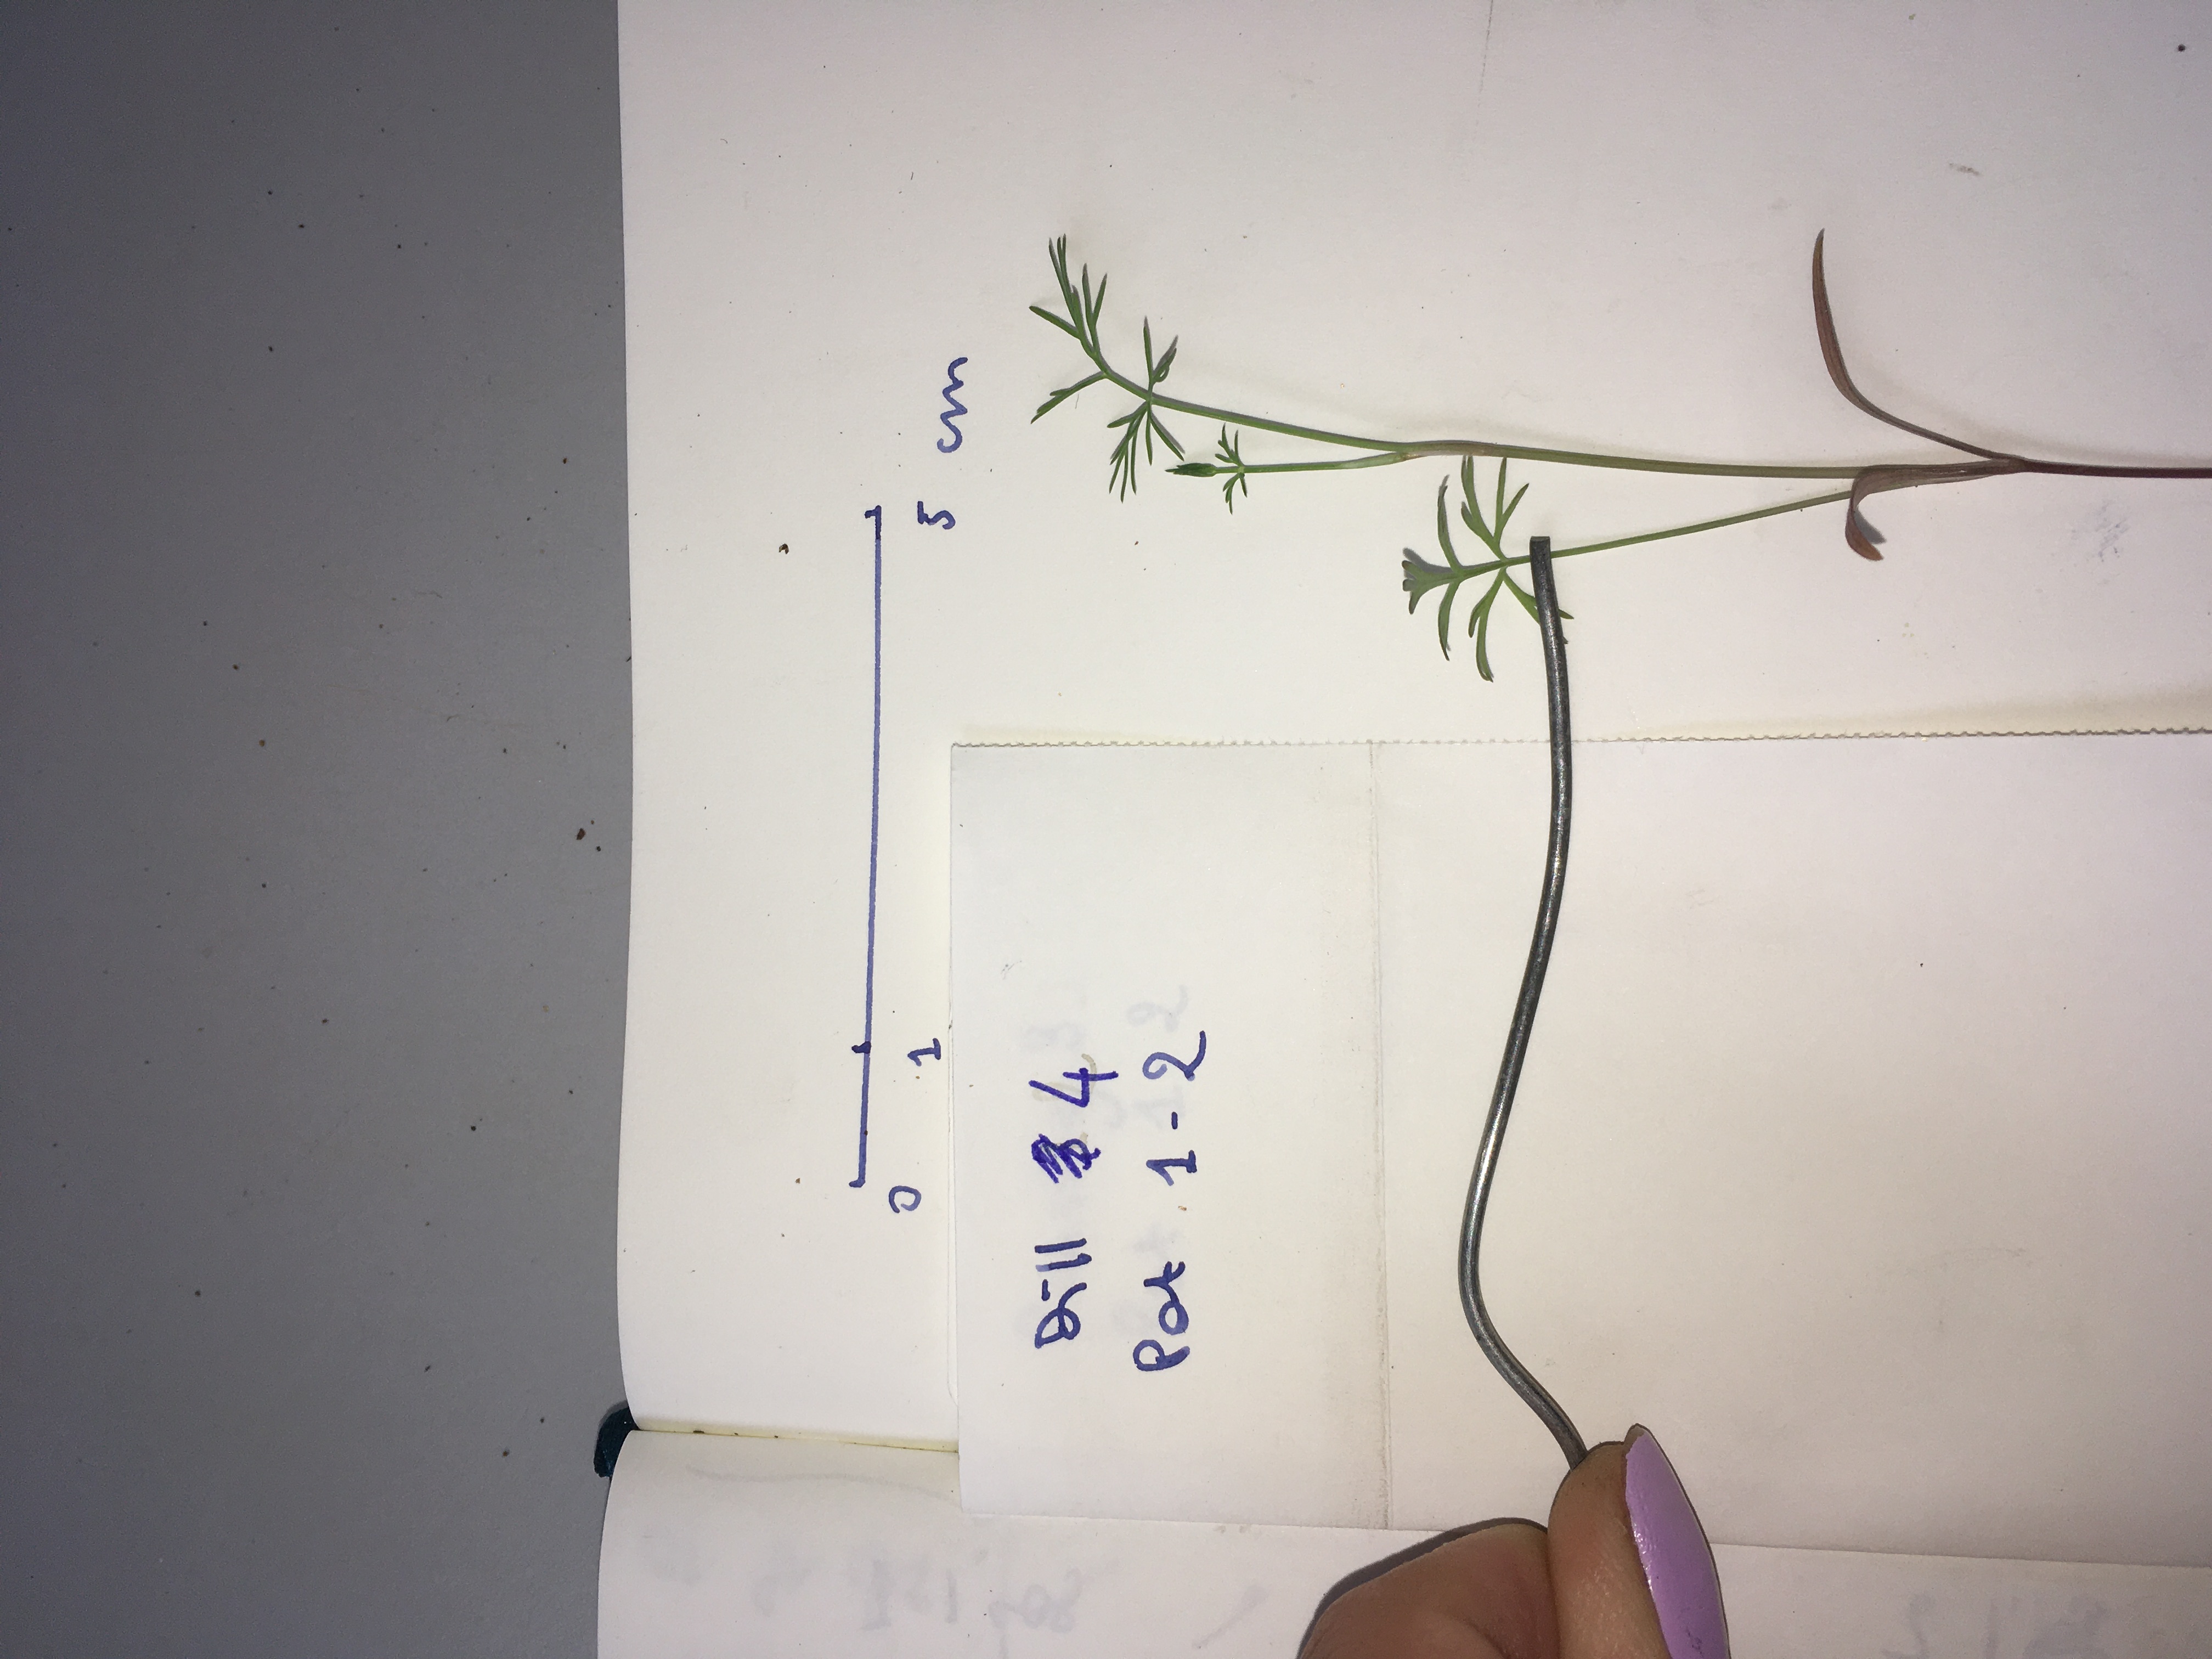 0 1 5 cm
Dill 4
Pot 1-2